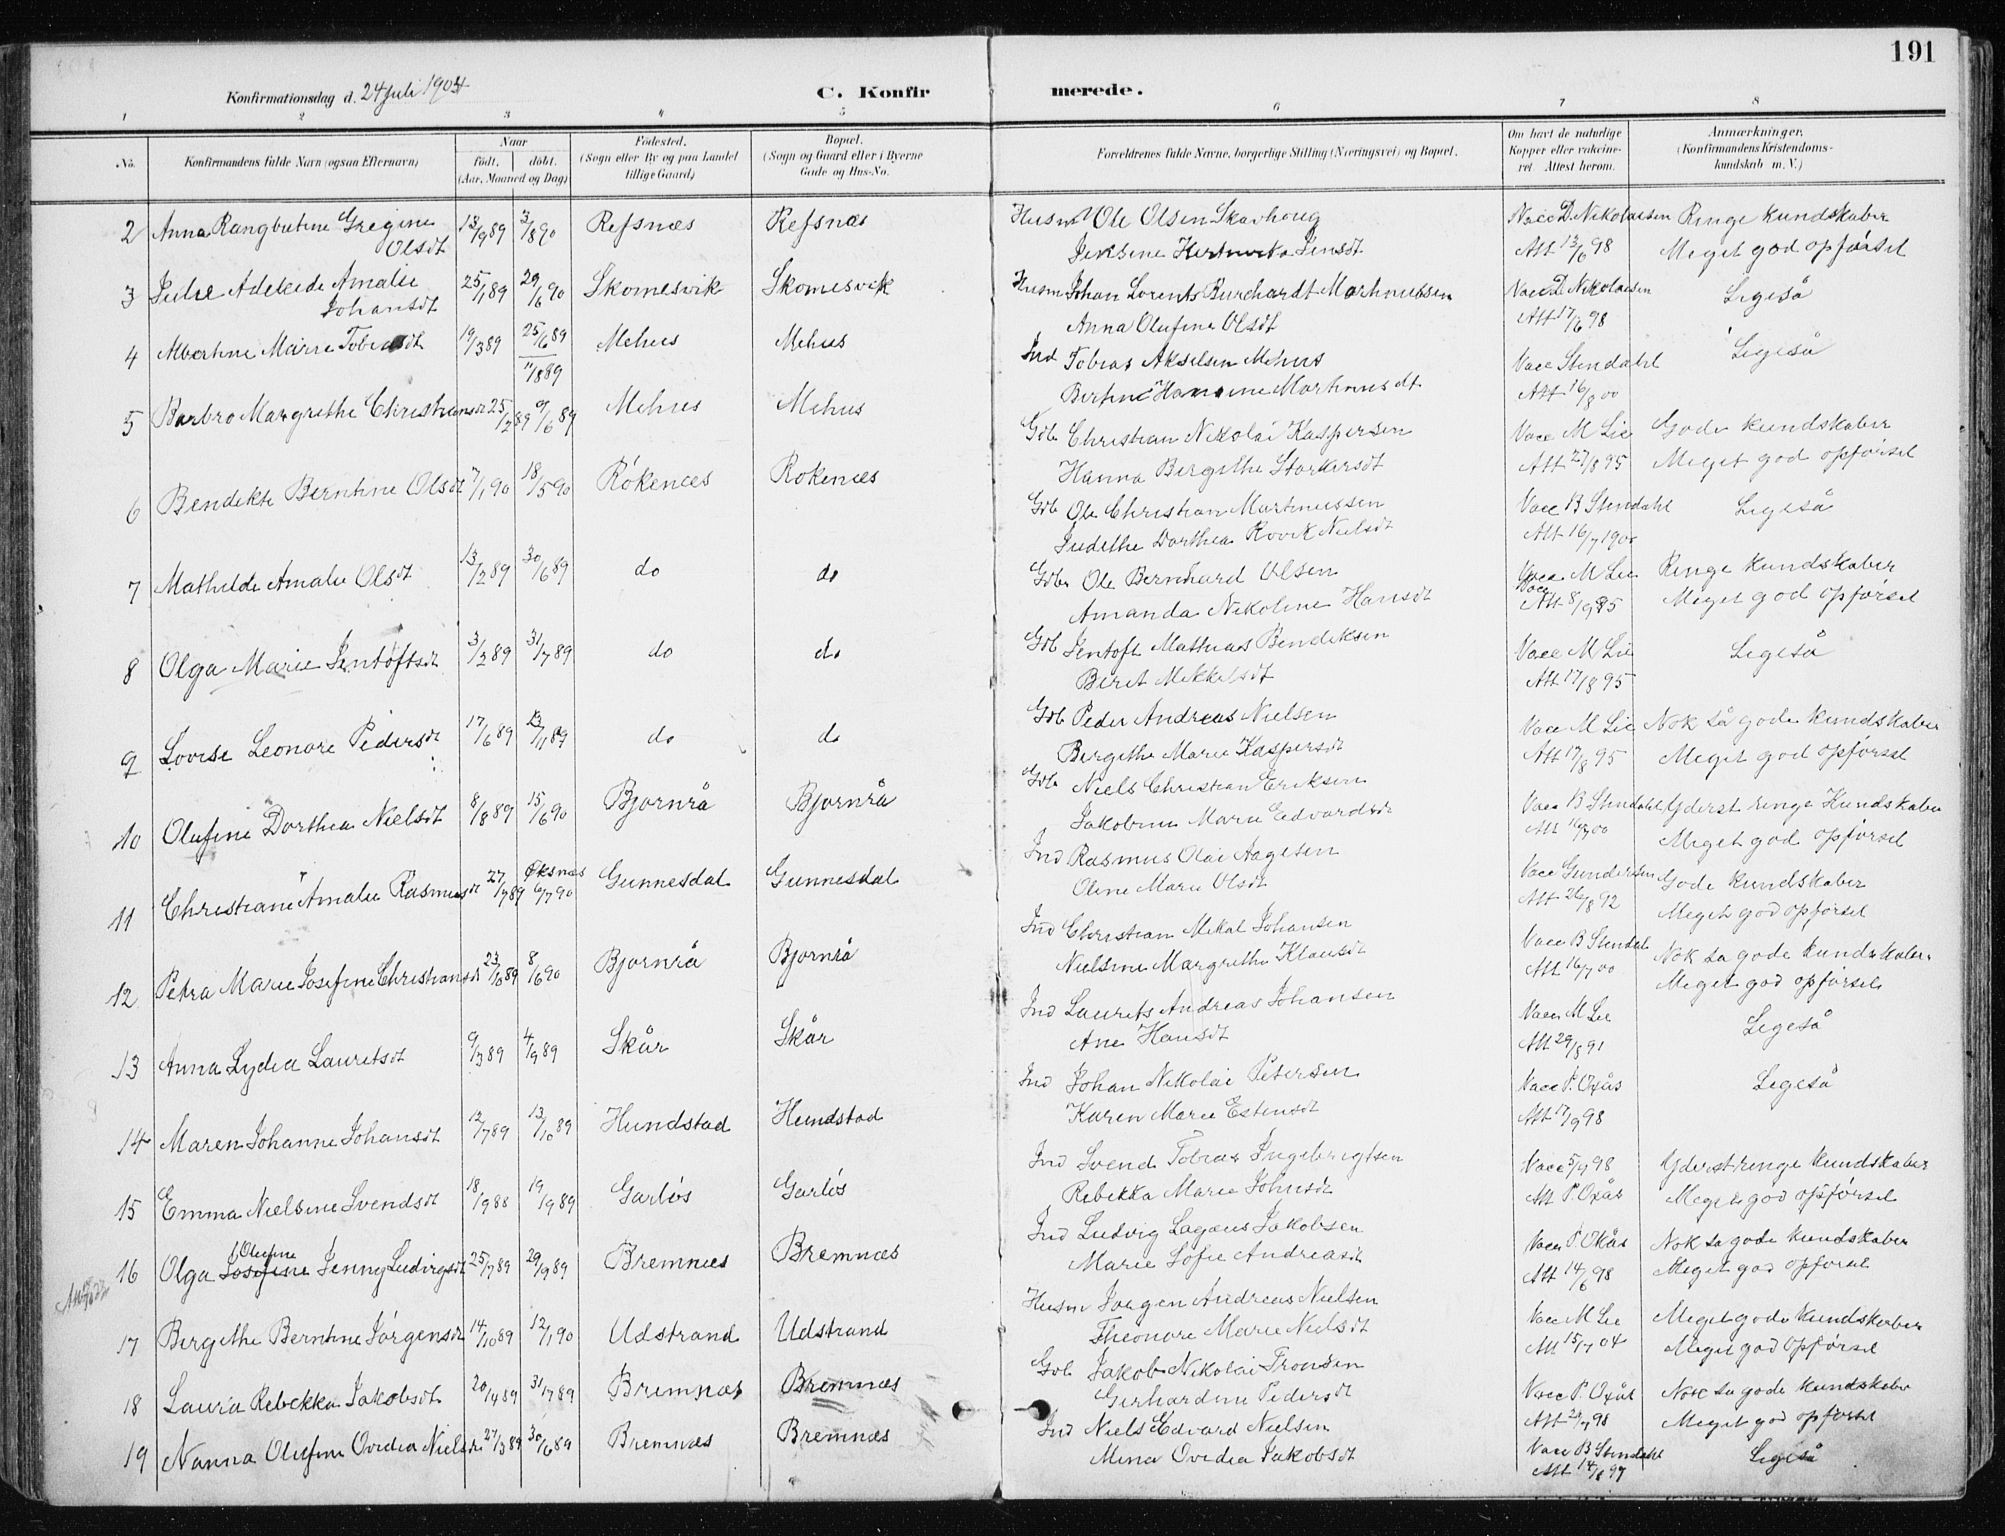 191
Konfirmationsdag d. 24 Juli 1904
C. Konfirmerede.
1 2 3 4 5 6 7 8
No. Konfirmandens fulde Navn (ogsaa Efternavn) Naar født. døbt. (Aar, Maaned og Dag) Fødested. (Sogn eller By og paa Landet tillige Gaard) Bopæl. (Sogn og Gaard eller i Byerne Gade og Hus-No.
Forældrenes fulde Navne, borgerlige Stilling (Næringsvei) og Bopæl. Om havt de naturlige Kopper eller vakcineret. Attest herom. Anmærkninger. (Konfirmandens Kristendomskundskab m. V.)
2 Anna Gregine Olsdt 13/9 89 3/8 90 Refsnæs Refsnæs Husm Ole Olsen Skavhoug Vacc D. Nikolaisen Ringe kundskaber
Jensine Jensdt Att 13/6 98 Meget god opførsel
3 Julie Adeleide Amalie Johansdt 25/1 89 29/6 90 Skomesvik Skomesvik Husm Johan Lorents Burchardt Marthinussen Vacc D. Nikolaisen Ligeså
Anna Olufine Olsdt Att 17/6 98
4 Albertine Marie Tobiasdt 19/3 89 25/6 89 11/8 89 Mehus Mehus Ind Tobias Akselsen Mehus Vacc Stendahl Ligeså
Bertine Hansine Marthinusdt Att 16/8 00
5 Barbro Margrethe Christiansdt 25/2 89 9/6 89 Mehus Mehus Gdb Christian Nikolai Kaspersen Vacc M Lie Gode kundskaber
Hanna Bergithe Storkersdt Att 27/8 95 Meget god opførsel
6 Bendikte Berntine Olsdt 7/1 90 18/5 90 Rökenæs Rökenæs Gdb Ole Christian Martinussen Vacc B Stendahl Ligeså
Judithe Dorthea Rovik Nielsdt Att 16/7 1900
7 Mathilde Amalie Olsdt 13/2 89 30/6 89 do do Gdb Ole Bernhard Olsen Vacc M Lie Ringe kundskaber
Amanda Nikoline Hansdt Att 8/9 85 Meget god opførsel
8 Olga Marie Jentoftsdt 3/2 89 31/7 89 do do Gdb Jentoft Mathias Bendiksen Vacc M Lie Ligeså
Berit Mikkelsdt Att 17/8 95
9 Lovise Leonore Pedersdt 17/6 89 13/11 89 do do Gdb Peder Andreas Nielsen Vacc M Lie Nok så gode kundskaber
Bergithe Marie Kaspersdt Att 17/8 95 Meget god opførsel
10 Olufine Dorthea Nielsdt 8/8 89 15/6 90 Bjørnrå Bjørnrå Gdb Niels Christian Eriksen Vacc B Stendahl Yderst ringe Kundskaber
Jakobine Marie Edvardsdt Meget god opførsel
11 Christiane Amalie Rasmusdt 27/7 89 Øksnes 6/7 90 Gunnesdal Gunnesdal Ind Rasmus Olai Aagesen Vacc Gundersen Gode kundskaber
Oline Marie Olsdt Att 26/8 92 Meget god opførsel
12 Petra Marie Josefine Christiansdt 23/10 89 8/6 90 Bjørnrå Bjørnrå Ind Christian Mikal Johansen Vacc B Stendal Nok så gode kundskaber
Nielsine Margrethe Klausdt Att 16/7 00 Meget god opførsel
13 Anna Lydia Lauritsdt 9/3 89 4/9 89 Skår Skår Ind Laurits Andreas Johansen Vacc M Lie Ligeså
Ane Hansdt Att 29/8 91
14 Maren Johanne Johansdt 12/7 89 13/10 89 Hundstad Hundstad Ind Johan Nikolai Petersen Vacc P. Oxås Ligeså
Karen Marie Estensdt Att 17/9 98
15 Emma Nielsine Svendsdt 18/9 88 19/9 89 Garløs Garløs Ind Svend Tobias Ingebrigtsen Vacc 5/7 98 Yderst ringe kundskaber
Rebekka Marie Johnsdt Att P. Oxås Meget god opførsel
16 Olga Josefine Olufine Jenny Ludvigsdt 25/7 89 29/9 89 Bremnes Bremnæs Ind Ludvig Lagæus Jakobsen Vacc P. Okås Nok så gode kundskaber
Marie Sofie Andreasdt Att 14/6 98 Meget god opførsel
17 Bergithe Berntine Jørgensdt 14/10 89 12/1 90 Udstrand Udstrand Husm Jørgen Andreas Nielsen Vacc M Lie Meget gode kundskaber
Theonore Marie Nielsdt Att 15/7 04 Meget god opførsel
18 Laura Rebekka Jakobsdt 20/4 89 31/7 89 Bremnæs Bremnæs Gdb Jakob Nikolai Tronsen Vacc P. Oxås Nok så gode kundskaber
Gerhardine Pedersdt Meget god opførsel
19 Nanna Olufine Ovidia Nielsdt 27/3 89 30/6 89 Bremnæs Bremnæs Ind Niels Edvard Nielsen Vacc B Stendahl Ligeså
Mina Ovidia Jakobsdt Att 14/8 97